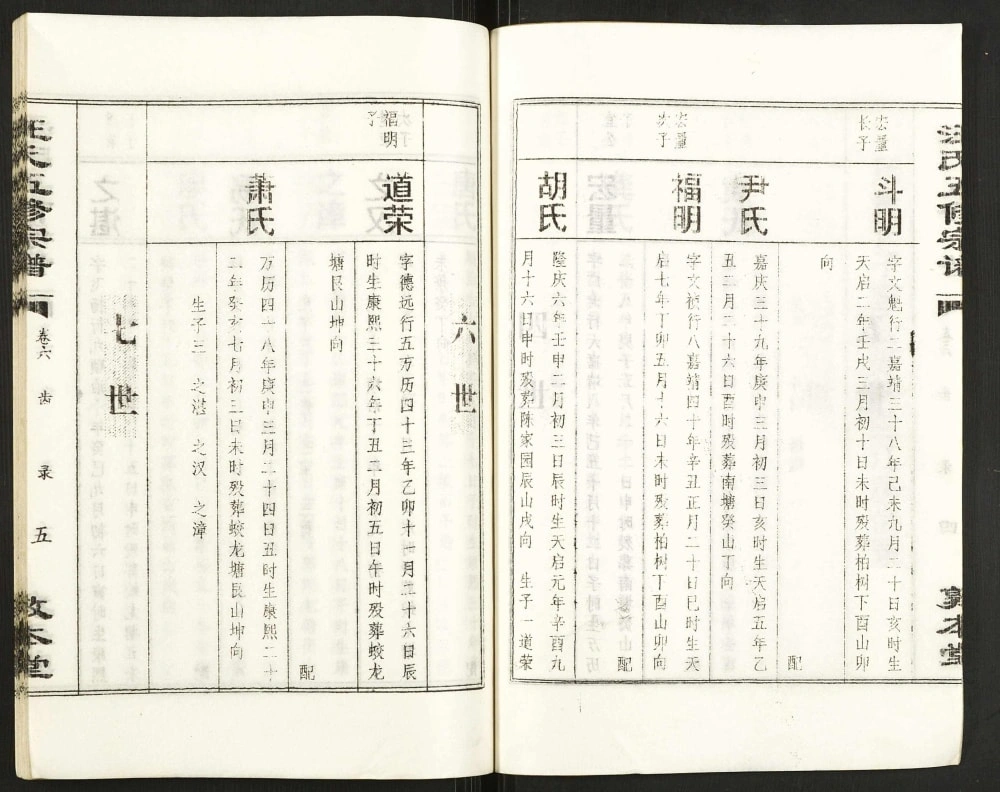 汪氏五修宗谱
敦本堂
宏量
长子
斗明
字文魁行二嘉靖三十八年己未九月二十日亥时生
天启二年壬戌三月初十日未时殁葬柏树下酉山卯
向
配
尹氏
嘉庆三十九年庚申三月初三日亥时生天启五年乙
丑二月二十六日酉时殁葬南塘癸山丁向
宏量
次子
福明
字文祯行八嘉靖四十年辛丑正月二十日巳时生天
启七年丁卯五月十六日未时殁葬柏树下酉山卯向
配
胡氏
隆庆六年壬申二月初三日辰时生天启元年辛酉九
月十六日申时殁葬陈家园辰山戌向 生子一道荣
六世
福明
子
道荣
字德远行五万历四十三年乙卯十一月二十六日辰
时生康熙三十六年丁丑二月初五日午时殁葬蛟龙
塘艮山坤向
配
萧氏
万历四十八年庚申三月二十四日丑时生康熙二十
二年癸亥七月初三日未时殁葬蛟龙塘艮山坤向
生子三 之湛 之汉 之漳
七世
汪氏五修宗谱
卷六
齿录
五
敦本堂